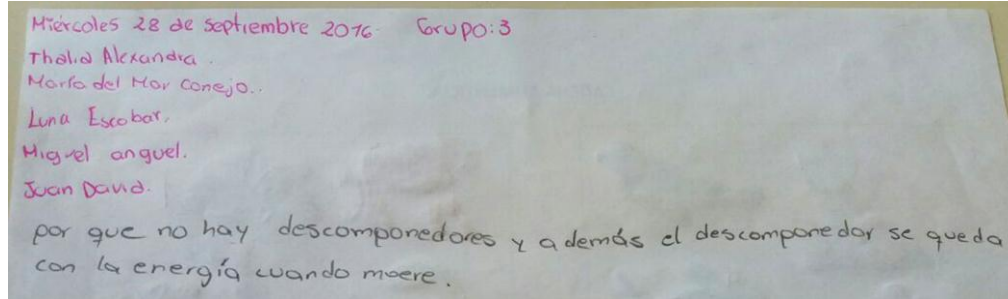 Miércoles 28 de septiembre 2016. Grupo:3
Thalia Alexandra.
María del Mar Conejo..
Luna Escobar.
Miguel anguel.
Juan David.
por que no hay descomponedores y además el descomponedor se queda
con la energía cuando moere.